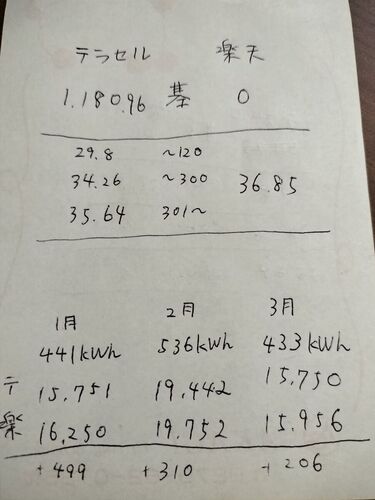 テラセル 楽天
1.180.96 基 0
29.8 ~120
34.26 ~300 36.85
35.64 301~
1月 2月 3月
441kWh 536kWh 433kWh
テ 15,751 19,442 15,750
楽 16,250 19,752 15,956
+499 +310 +206